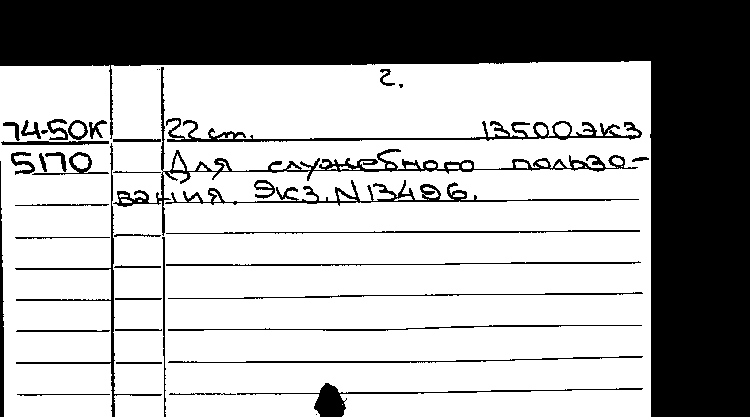 2.
74-50К 22 см. 13500 экз
5170 Для служебного пользо-
вания. Экз. N 13496.